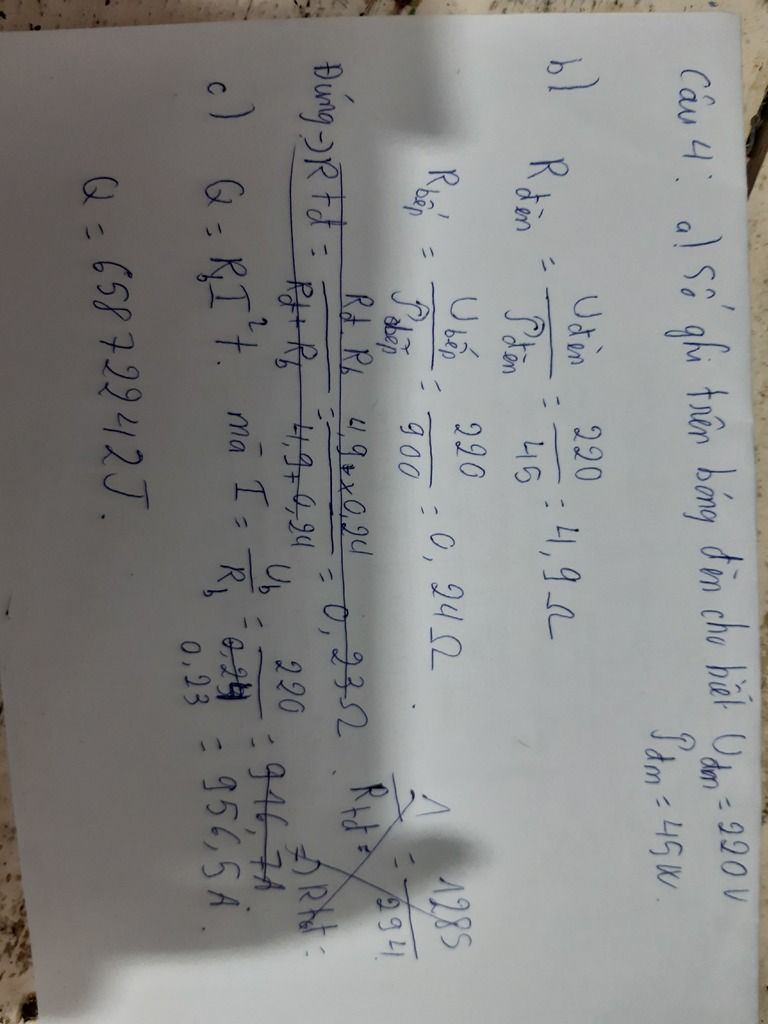 Câu 4: a) Số ghi trên bóng đèn cho biết Uđm = 220V
Pđm = 45W.
b) Rđèn = Uđèn / Pđèn = 220 / 45 = 4,9 Ω
Rbếp = Ubếp / Pbếp = 220 / 900 = 0,24 Ω
1 / Rtđ = 1285 / 294
Đúng → Rtđ = Rđ Rb / Rđ + Rb = 4,9 x 0,24 / 4,9 + 0,24 = 0,23 Ω
=> Rtđ =
c) Q = RbI²t. mà I = Ub / Rb = 220 / 0,24 = 916,7A
0,23 = 956,5A.
Q = 65872242J.